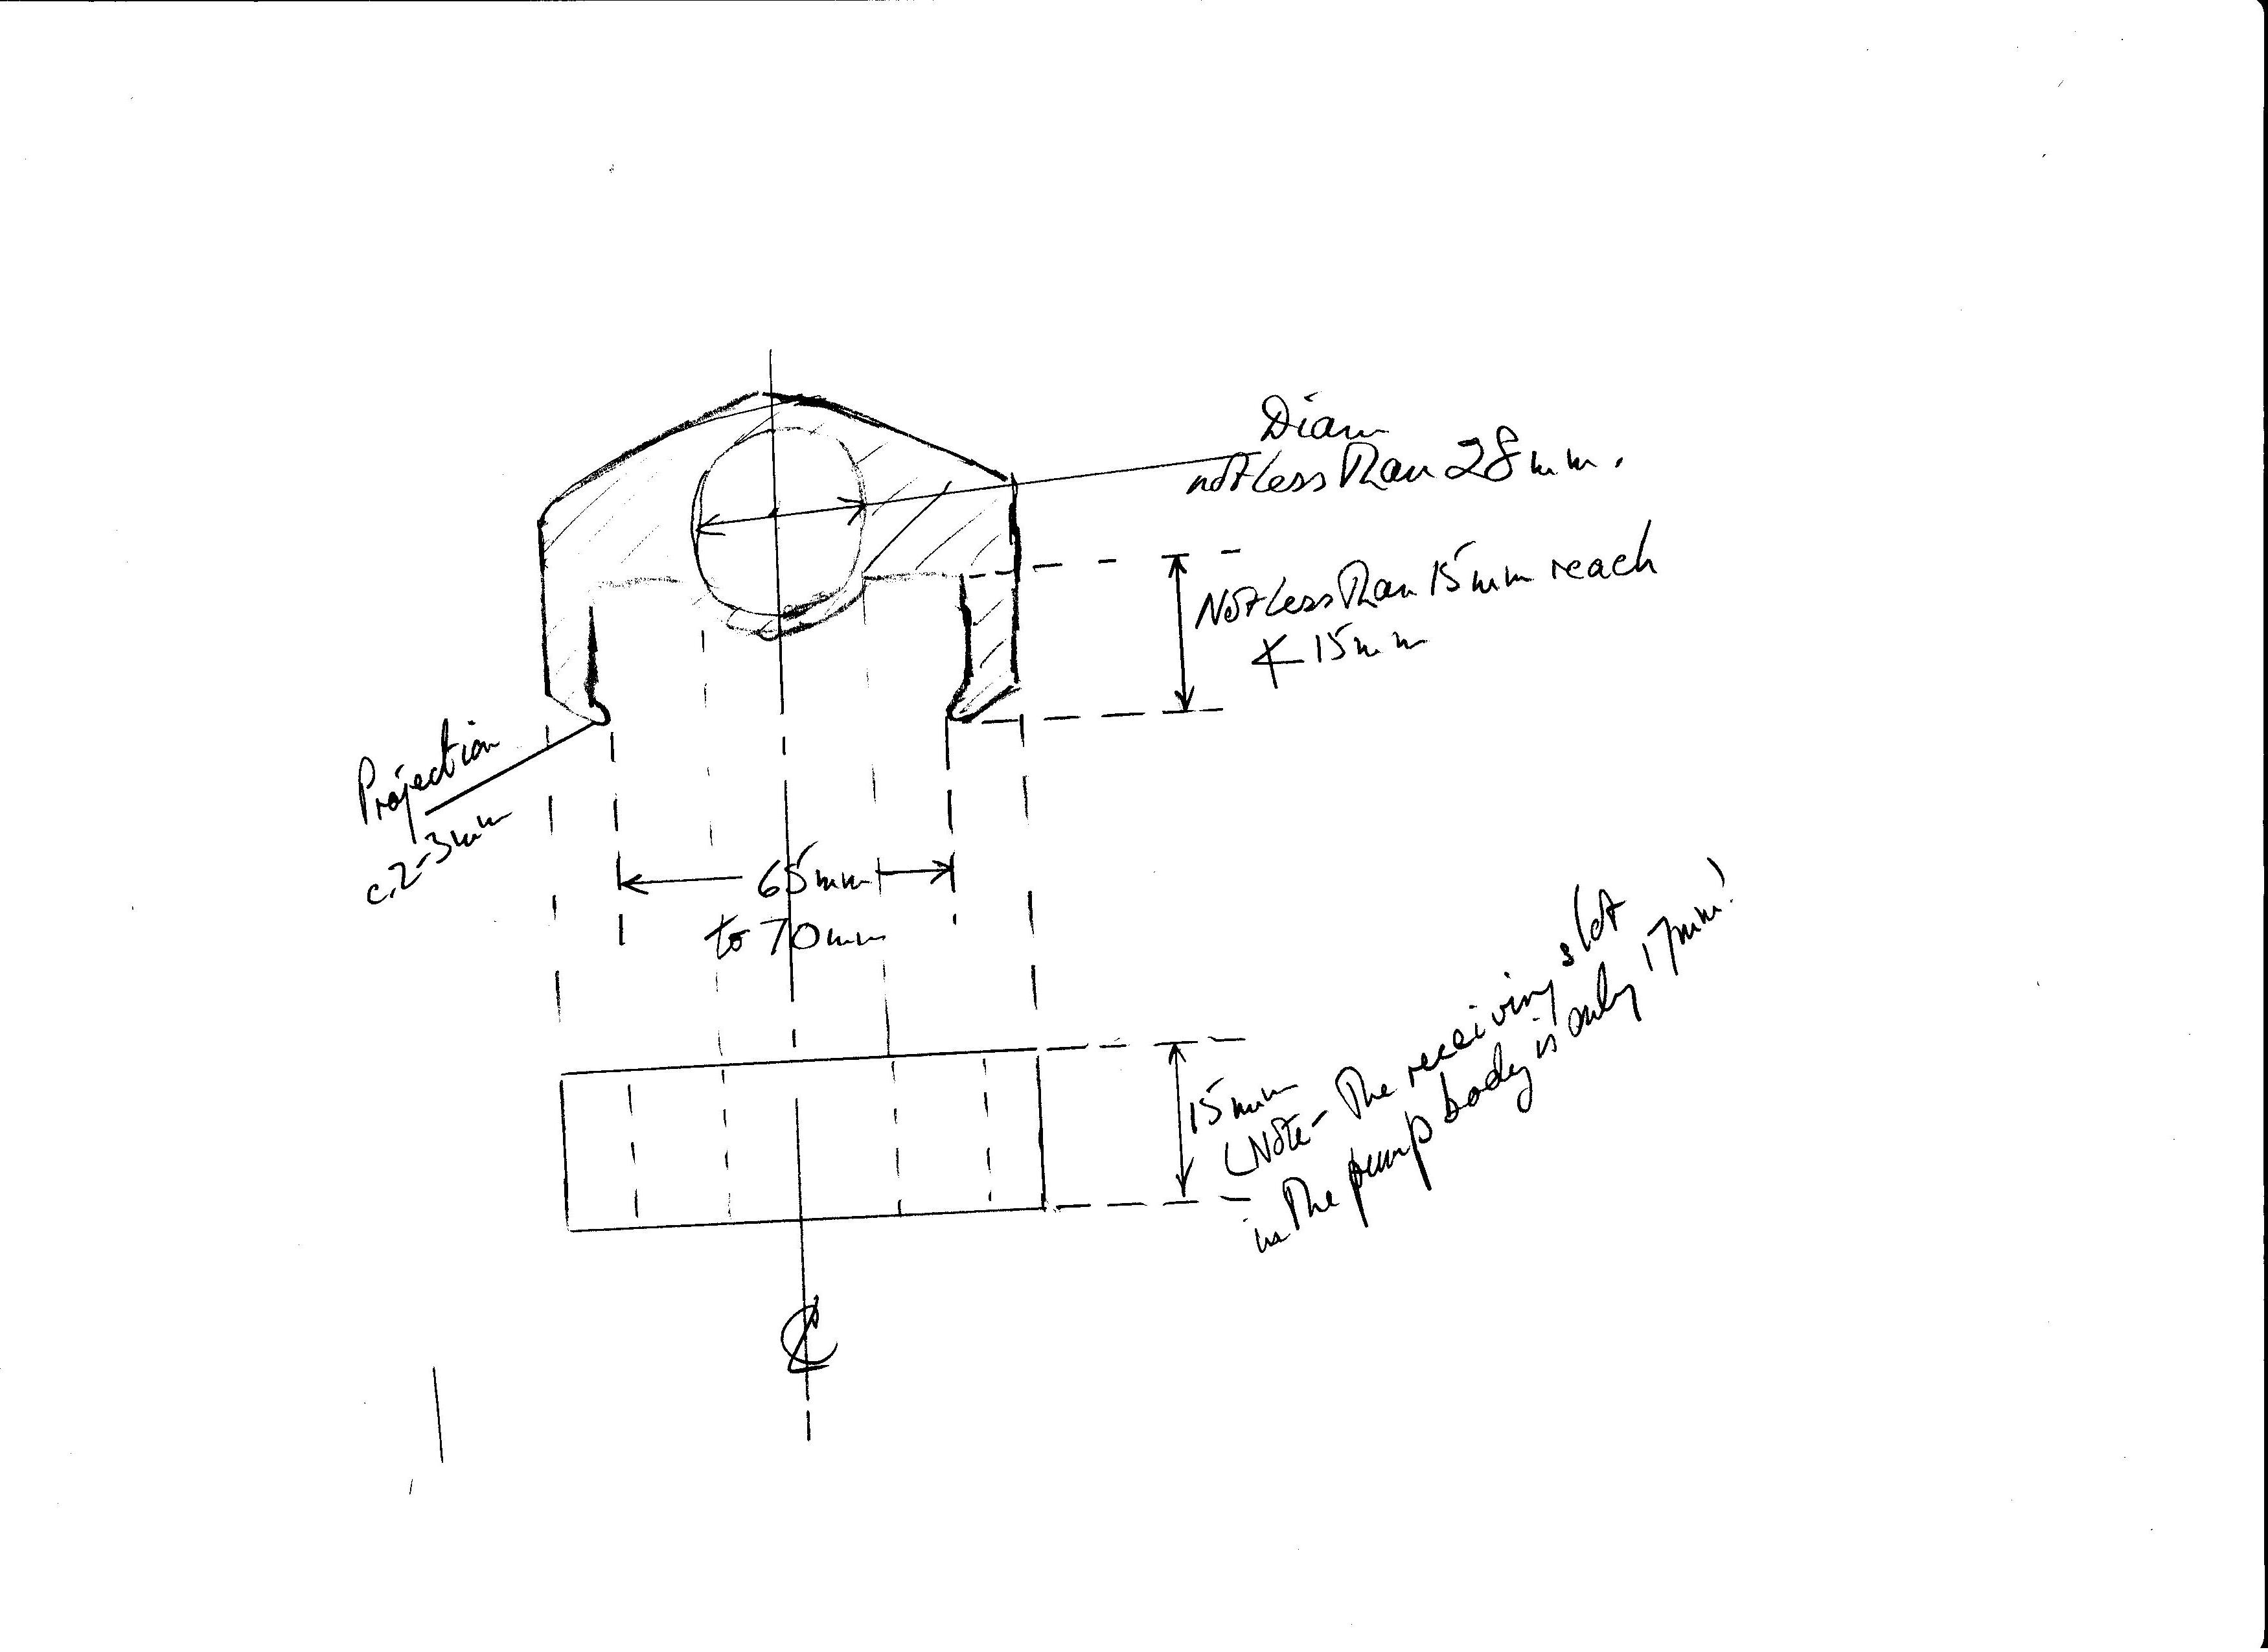 Diam
not less Than 28mm.
Not less Than 15mm reach
≮ 15mm
Projection
c. 2-3mm
65mm
to 70mm
15mm
(Note - The receiving slot
in The pump body is only 17mm!)
℄